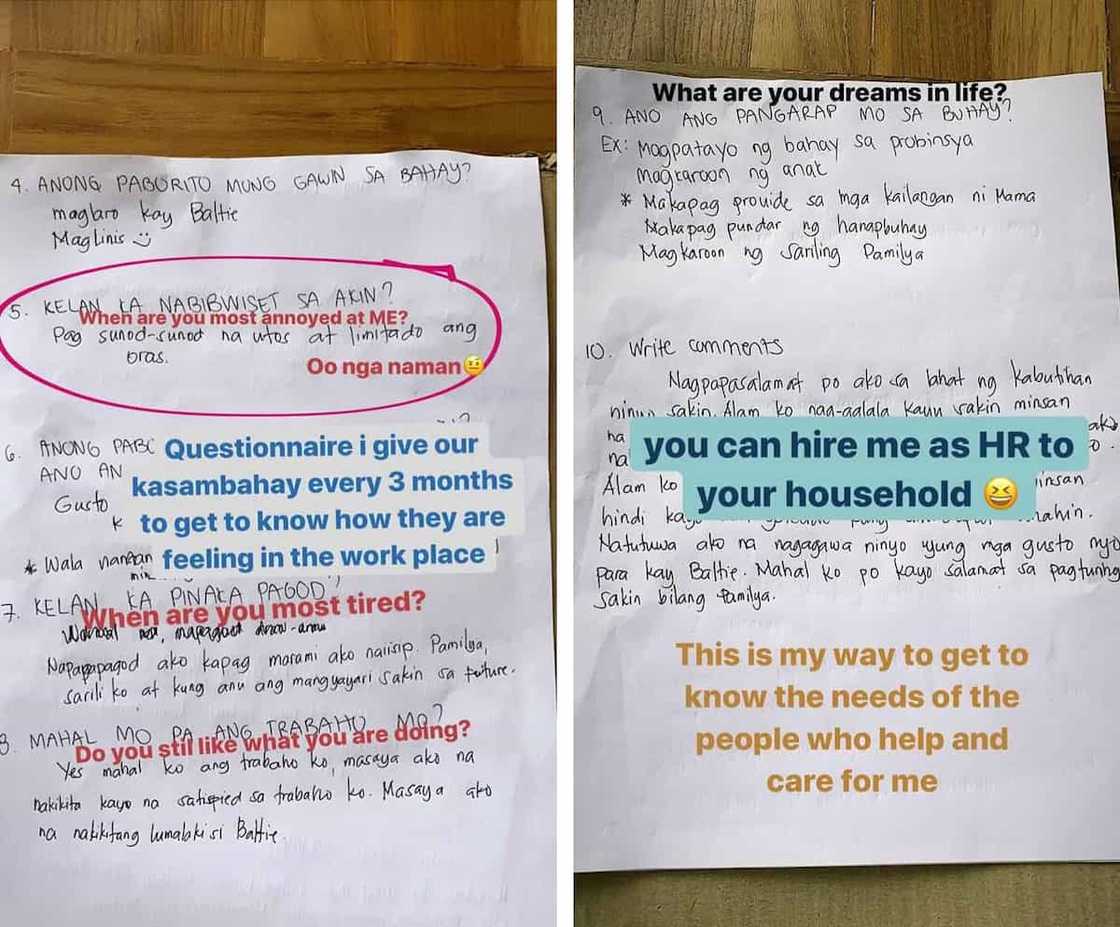 4. ANONG PABORITO MONG GAWIN SA BAHAY?
maglaro kay Baltie
Maglinis
5. KELAN KA NABIBWISET SA AKIN?
When are you most annoyed at ME?
Pag sunod-sunod na utos at limitado ang
oras.
Oo nga naman🤨
6. ANONG
ANO AN
Gusto
Questionnaire i give our
kasambahay every 3 months
to get to know how they are
feeling in the work place
* Wala naman
7. KELAN KA PINAKA PAGOD?
When are you most tired?
Napapapagod ako kapag marami ako naiisip. Pamilya,
sarili ko at kung anu ang mangyayari sakin sa future.
8. MAHAL MO PA ANG TRABAHO MO?
Do you stil like what you are doing?
Yes mahal ko ang trabaho ko, masaya ako na
nakikita kayo na satispied sa trabaho ko. Masaya ako
na nakikitang lumalaki si Baltie.
What are your dreams in life?
9. ANO ANG PANGARAP MO SA BUHAY?
Ex: Magpatayo ng bahay sa probinsya
magkaroon ng anak
* Makapag provide sa mga kailangan ni Mama
Makapag pundar ng hanapbuhay
Magkaroon ng sariling Pamilya
10. Write comments
Nagpapasalamat po ako sa lahat ng kabutihan
ninyo sakin. Alam ko nag-aalala kayo sakin minsan
you can hire me as HR to
your household 😆
Alam ko
hindi
Natutuwa ako na nagagawa ninyo yung mga gusto nyo
para kay Baltie. Mahal ko po kayo salamat sa pagturing
sakin bilang familya.
This is my way to get to
know the needs of the
people who help and
care for me